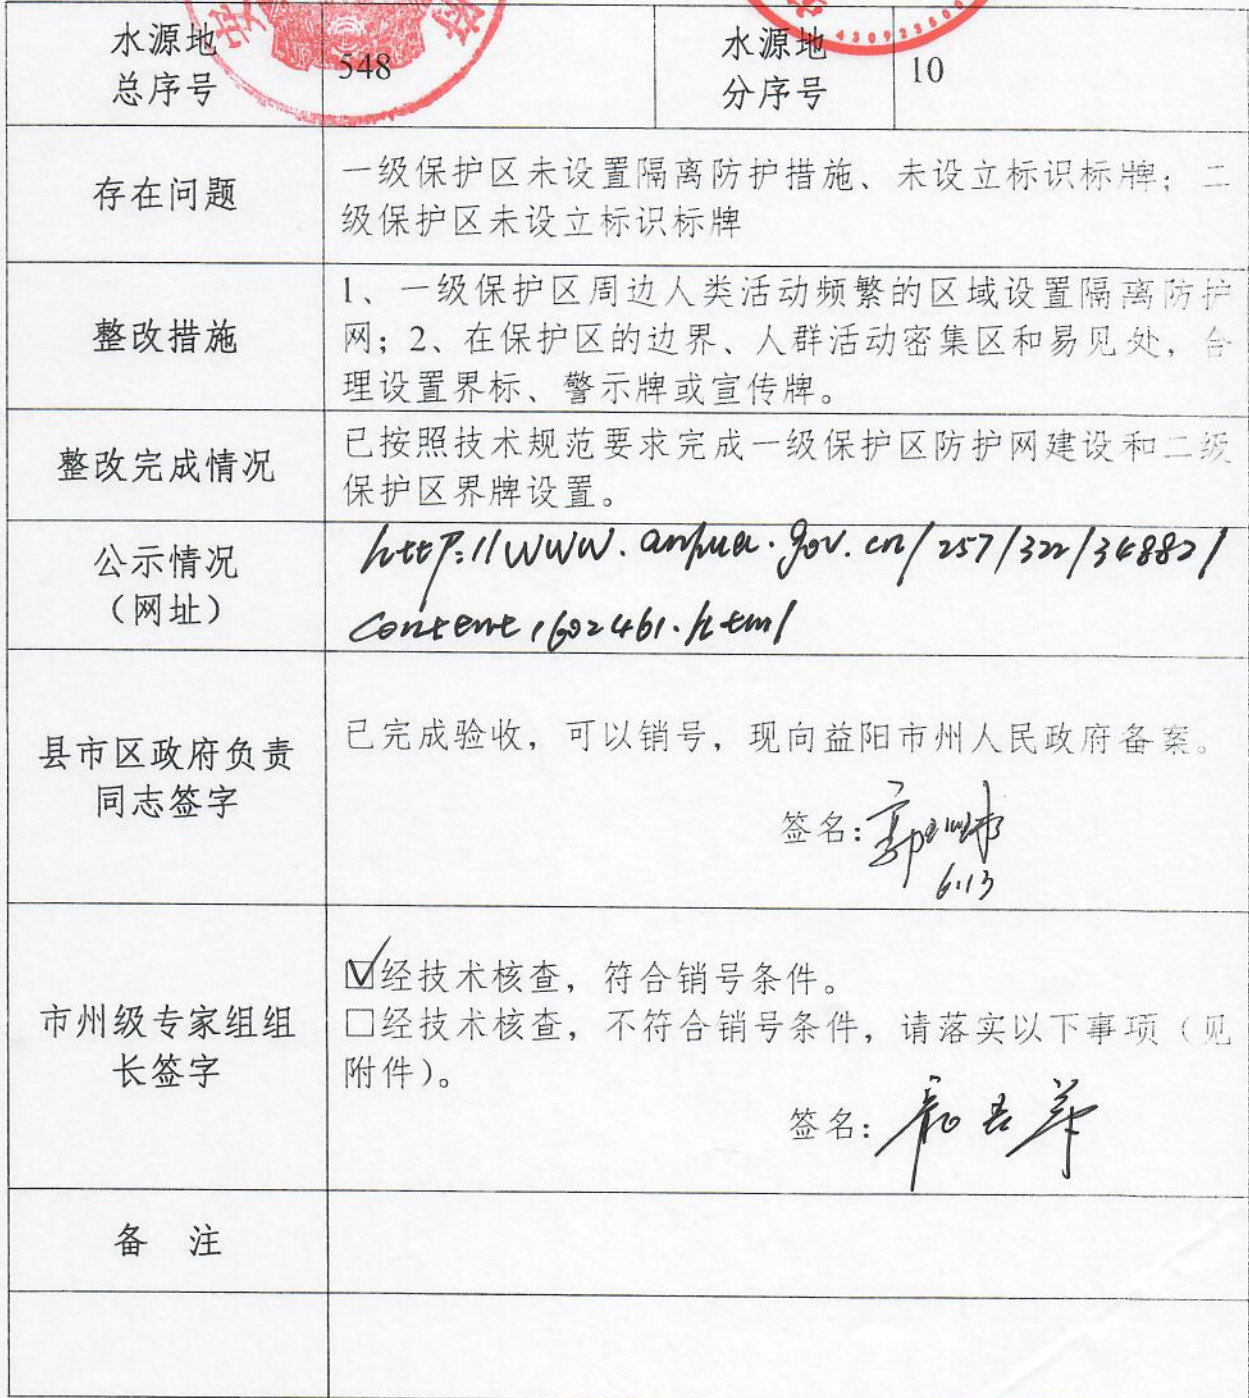 水源地
总序号
548
水源地
分序号
10
430923600
存在问题
一级保护区未设置隔离防护措施、未设立标识标牌；二
级保护区未设立标识标牌
整改措施
1、一级保护区周边人类活动频繁的区域设置隔离防护
网；2、在保护区的边界、人群活动密集区和易见处，合
理设置界标、警示牌或宣传牌。
整改完成情况
已按照技术规范要求完成一级保护区防护网建设和二级
保护区界牌设置。
公示情况
（网址）
http://www.anhua.gov.cn/257/322/34882/
content1602461.html
县市区政府负责
同志签字
已完成验收，可以销号，现向益阳市州人民政府备案。
签名：
6.13
市州级专家组组
长签字
☑经技术核查，符合销号条件。
□经技术核查，不符合销号条件，请落实以下事项（见
附件）。
签名：
备 注